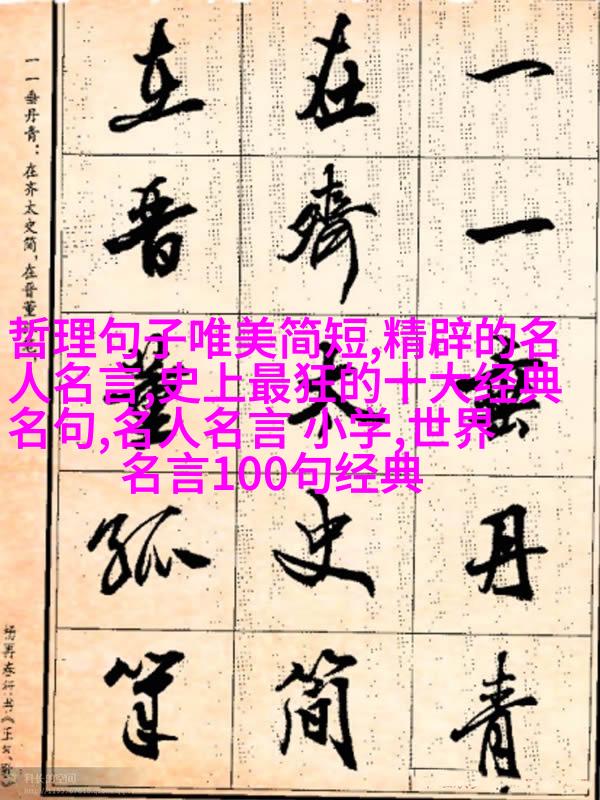 哲理句子唯美简短,精辟的名
人名言,史上最狂的十大经典
名句,名人名言 小学,世界
名言100句经典
一一垂丹青
在齊太史简
在晋董狐筆
一一垂丹青：在齐太史简，在晋董
杨再春行书《正气歌
科长的空间